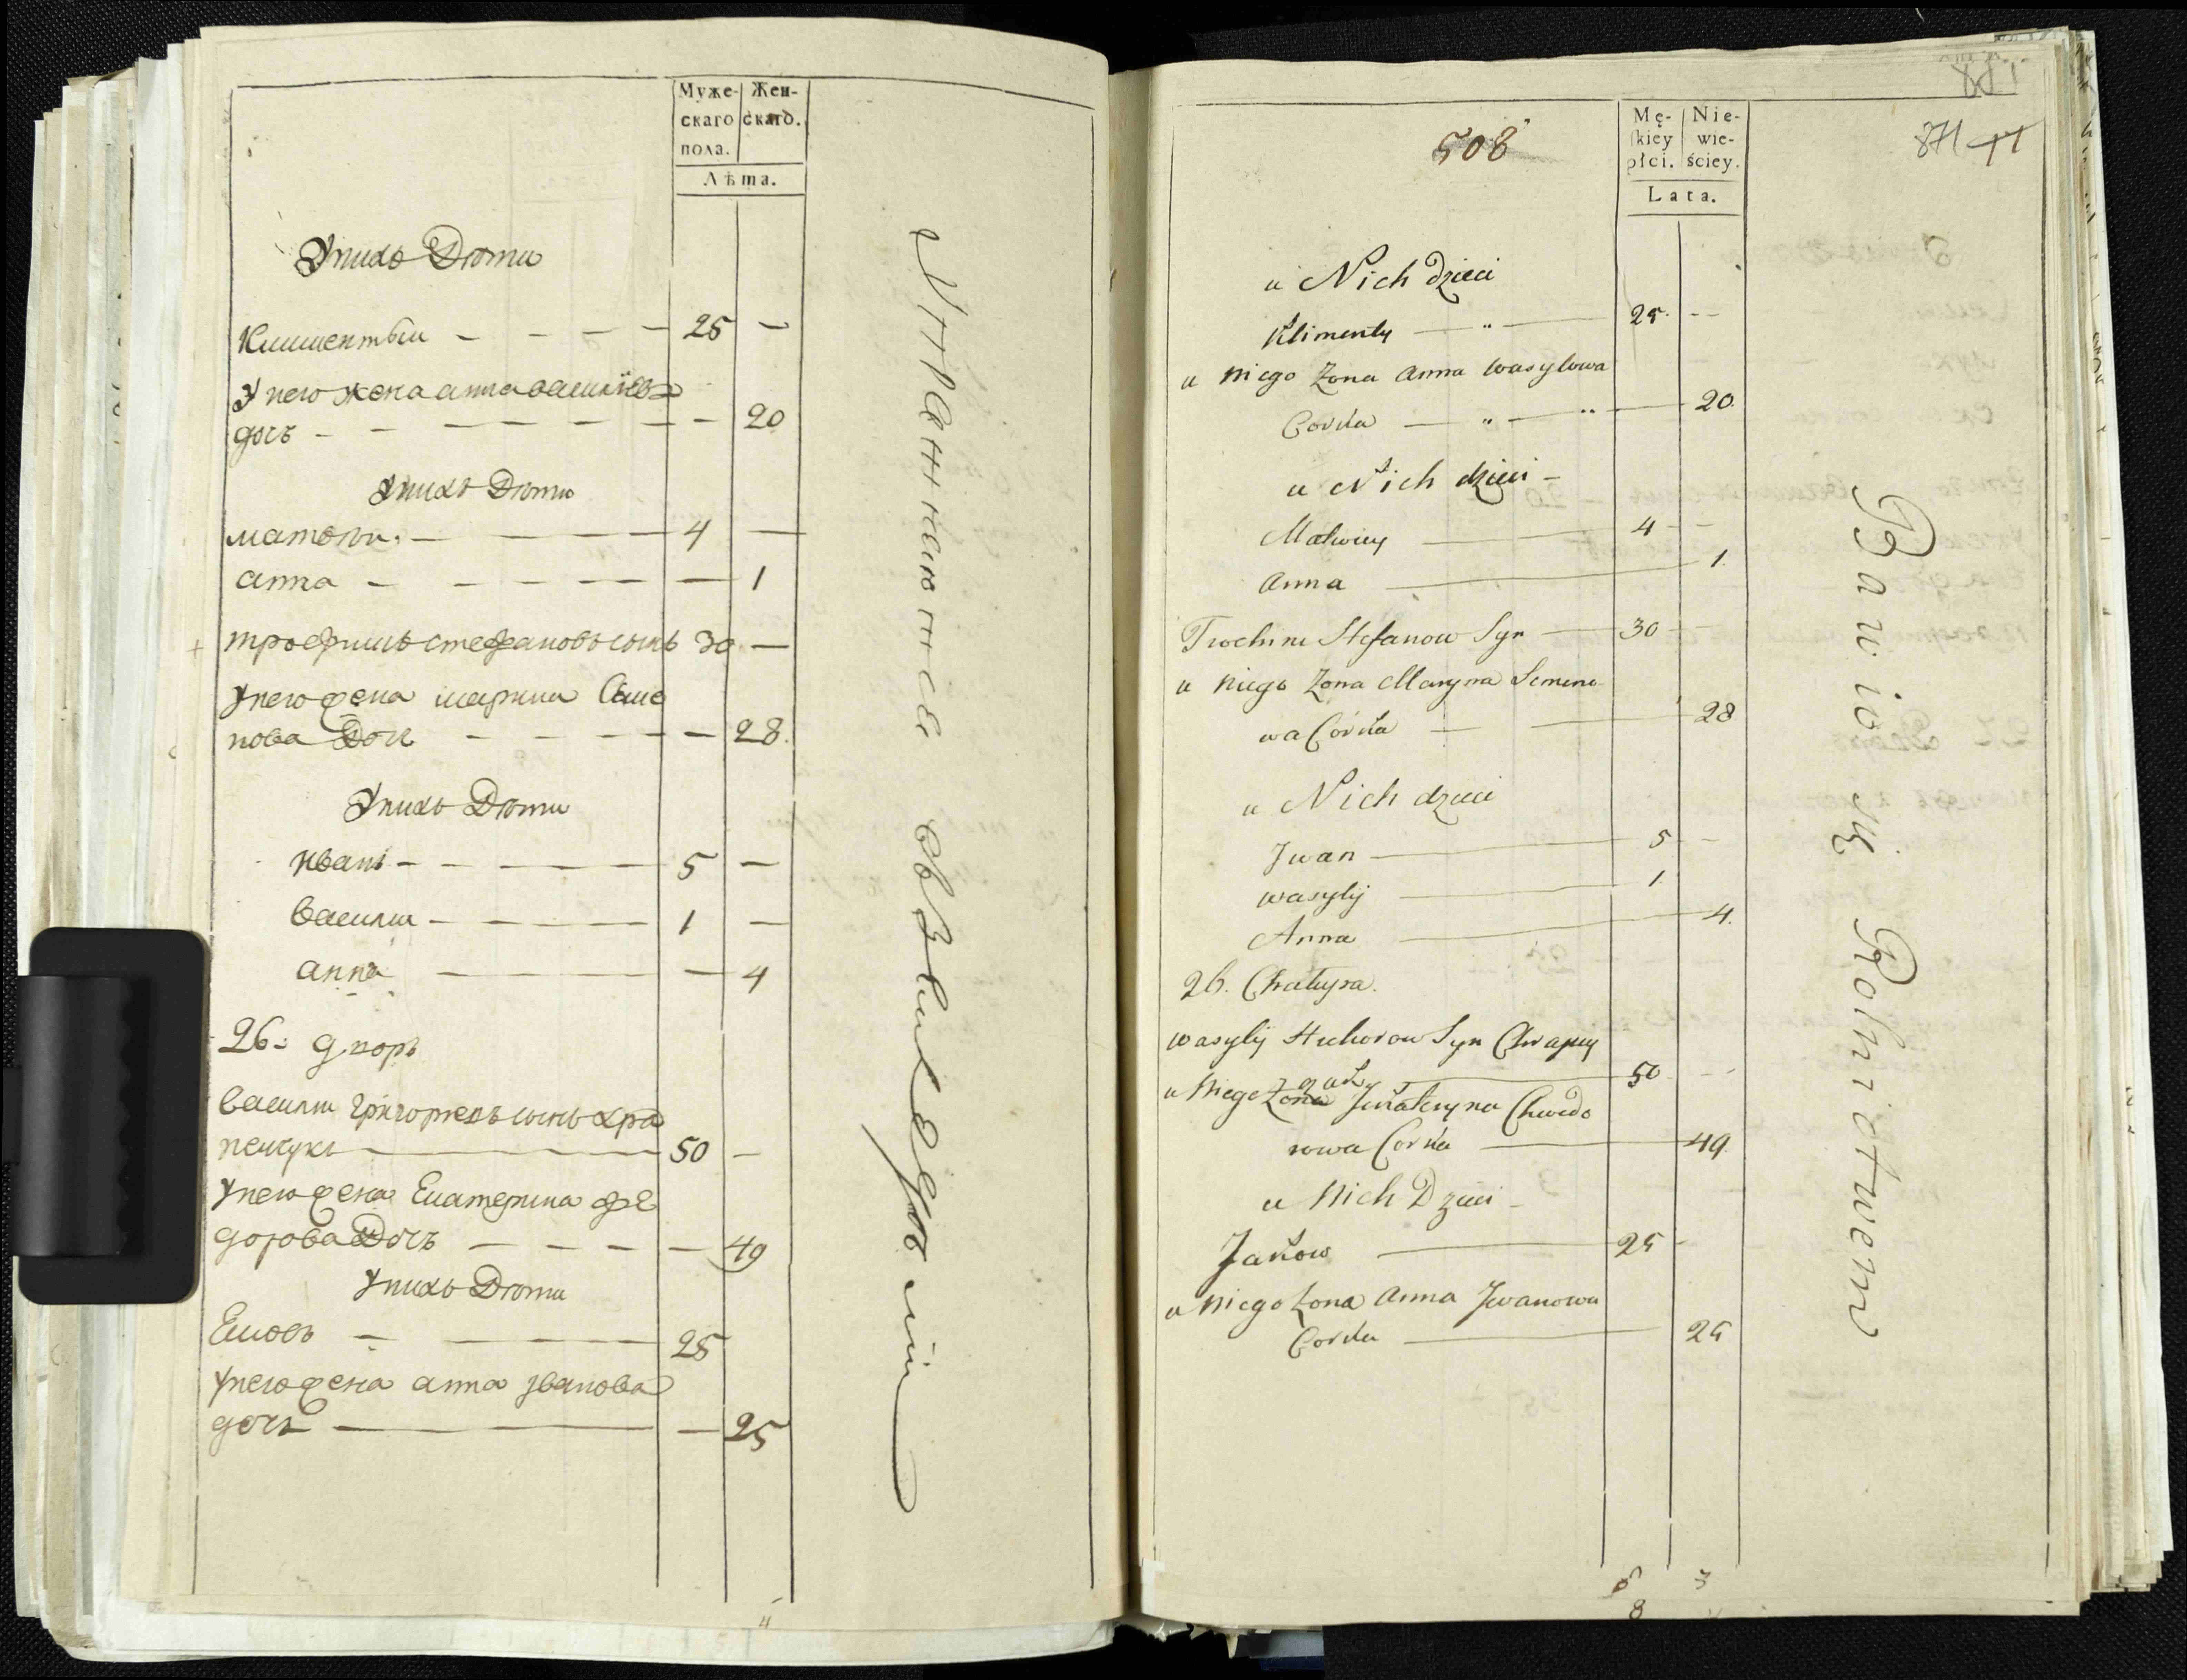 Муже- Жен-
скаго скаго.
пола.
Лѣта.
Унихъ Дѣти
Климентьи 25 —
У него жена анна василиева
дочь — 20
Унихъ Дѣти
матвѣи 4 —
анна — 1
трофимъ стефановъ сынъ 30 —
Унего жена марина Семе
нова Дочь — 28.
Унихъ Дѣти
Иванъ 5 —
Василии 1 —
анна — 4
26. дворъ
Василии григорьевъ сынъ хра
пенчукъ 50 —
Унего жена Екатерина фе
дорова Дочь — 49
Унихъ Дѣти
Ековъ 25
Унего жена анна Iванова
дочь — 25
Упражняются въ Земледѣлiи
508
871
Mę- Nie-
skiey wie-
płci. ściey.
Lata.
u Nich dzieci
Klimenty 25 --
u niego Zona Anna Wasylowa
Corka 20.
u Nich dzieci
Matwiey 4 --
Anna 1.
Trochim Stefanow Syn 30 --
u niego Zona Maryna Semeno
wa Corka 28
u Nich dzieci
Jwan 5 --
Wasylij 1
Anna 4.
26. Chałupa.
Wasylij Huhorow Syn Chrapen
czuk 50 --
u Niego Zona Jekateryna Chwedo
rowa Corka 49.
u Nich Dzieci
Jakow 25 -
u Niego Zona Anna Jwanowa
Corka 25
Bawio się Rolnictwem
8